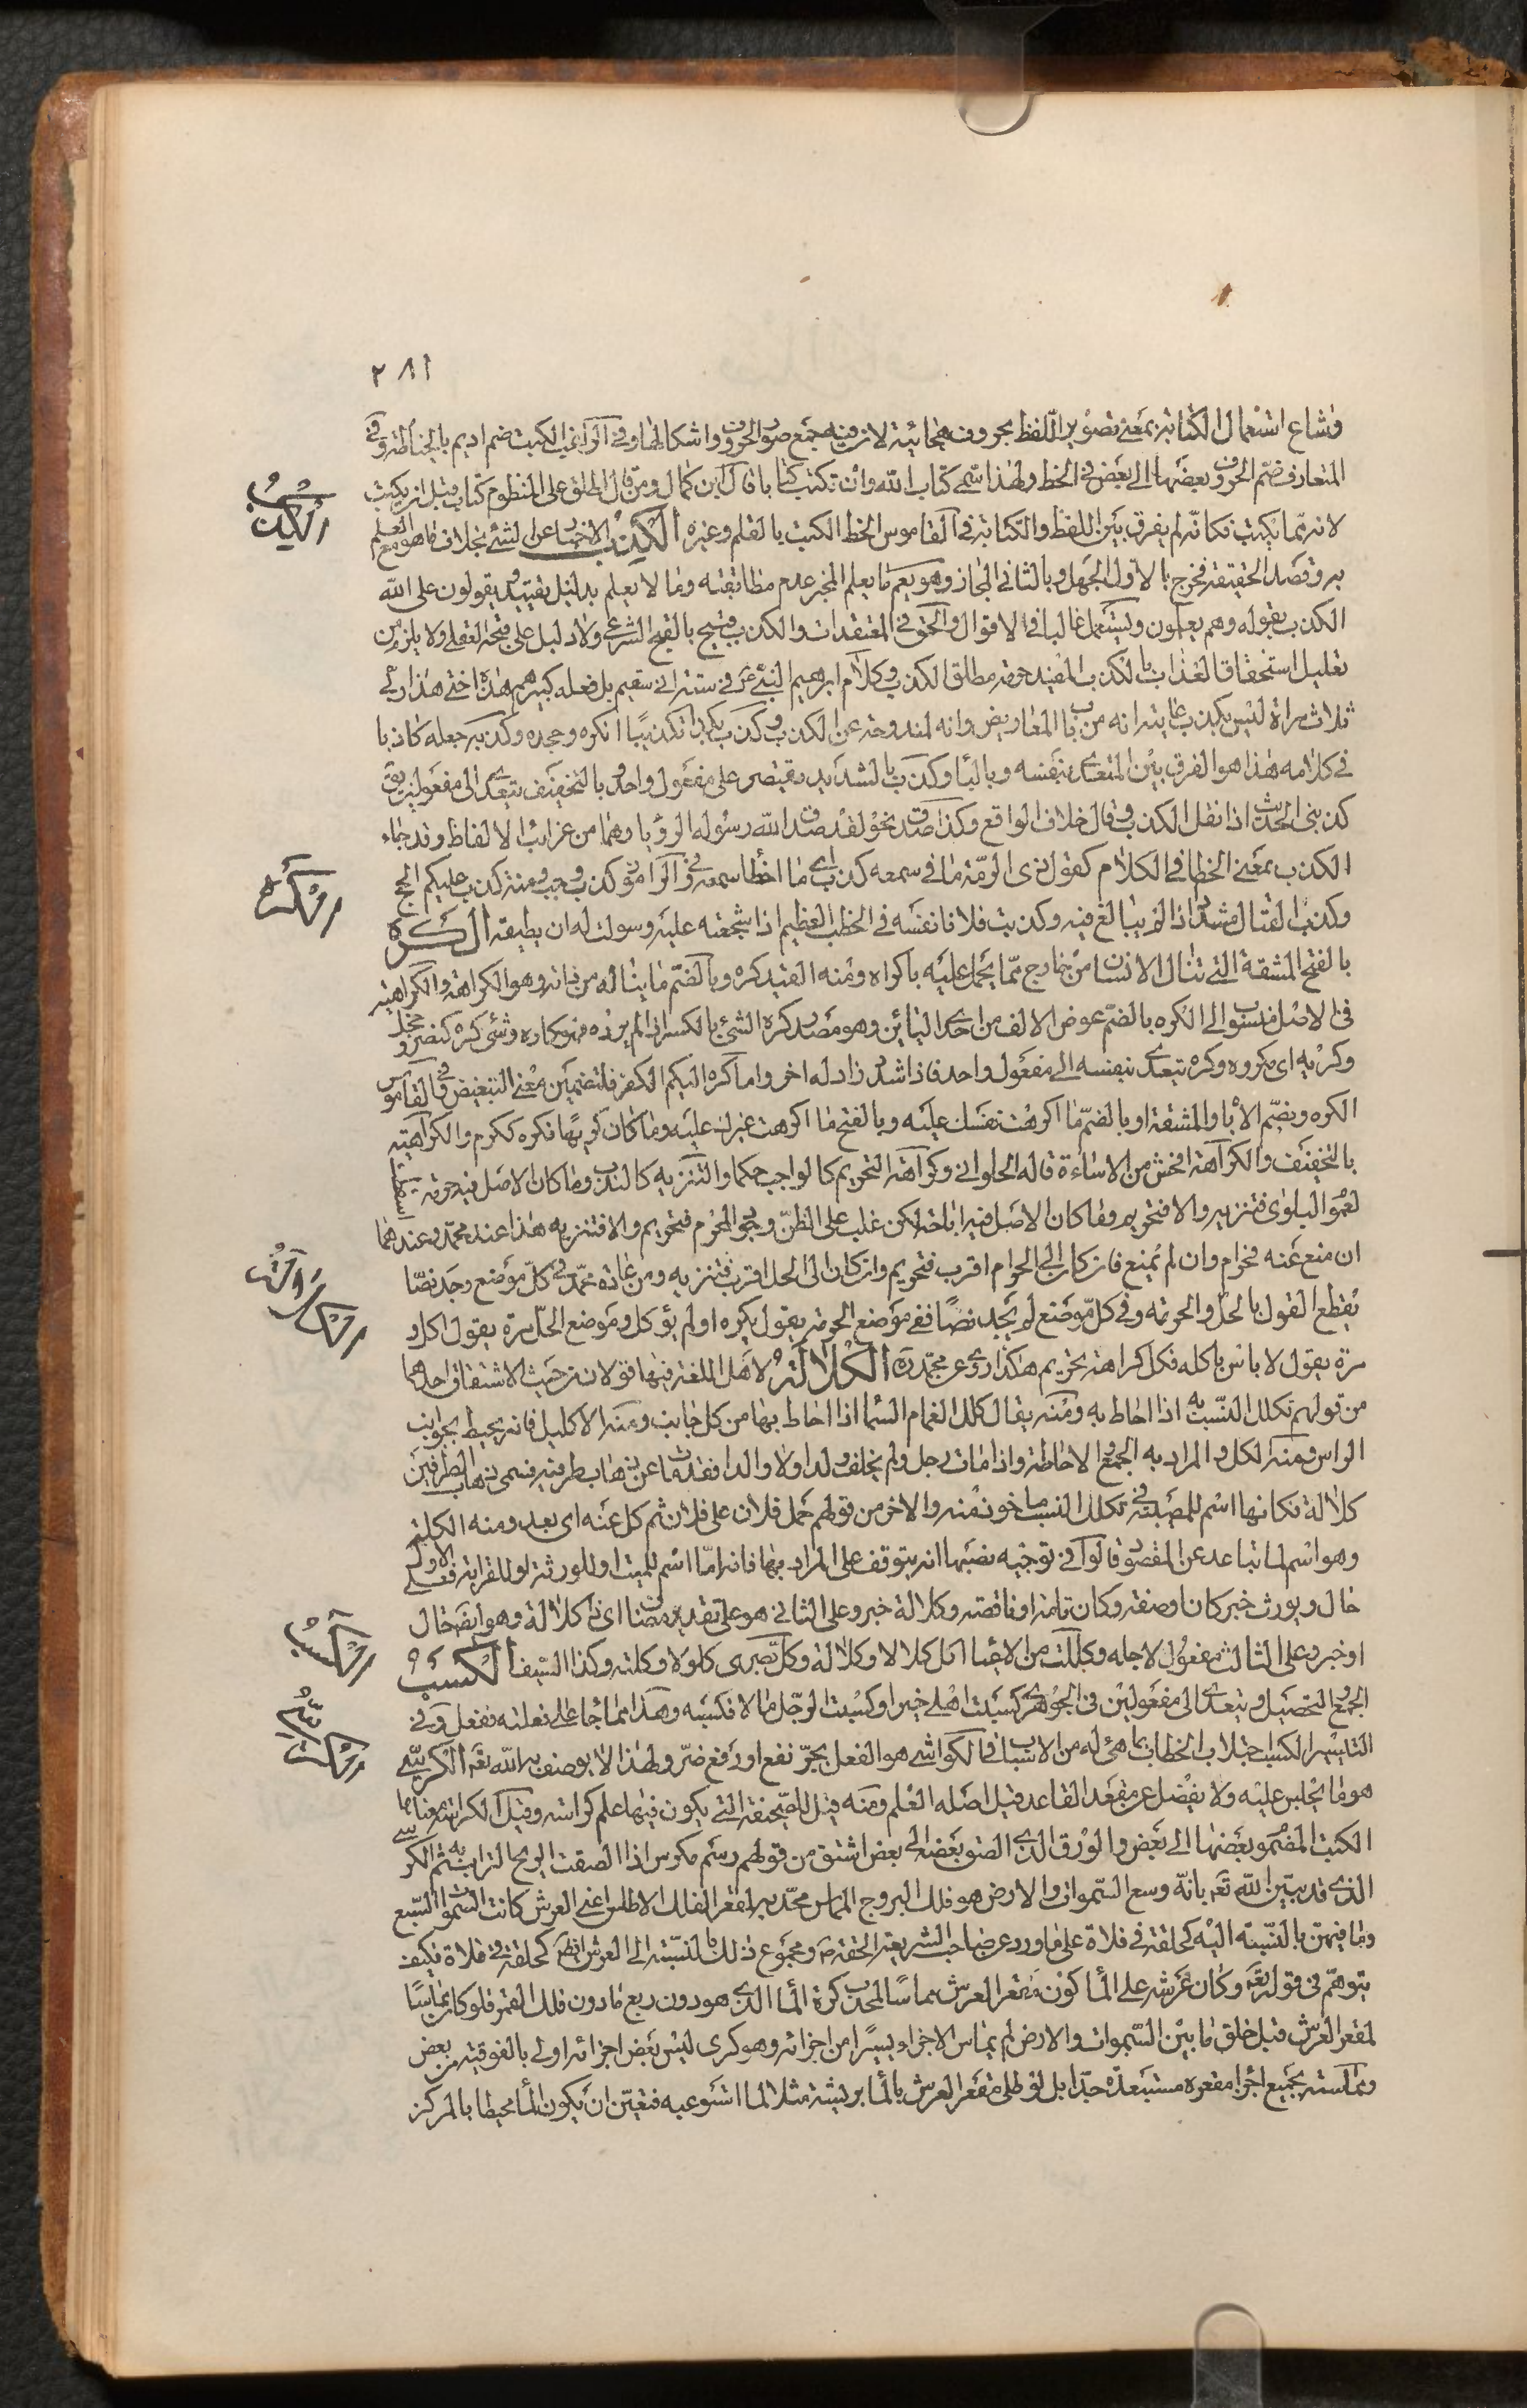 ٢٨١
وشاع استعمال الكتابة بمعنى تصوير اللفظ بحروف هجائية لان فيه جمع صور الحروف واشكالها وفي الراغب الكتب ضم اديم بالخياطة وفي
المتعارف ضم الحروف بعضها الى بعض في الخط ولهذا سمي كتاب الله وان لم تكتب كتابا قال ابن كمال ومن قال اطلق على المنظوم كتاب قبل ان يكتب
لانه مما يكتب فكانه لم يفرق بين اللفظ والكتابة في القاموس الخط الكتب بالقلم وغيره الكذب الاخبار عن الشئ بخلاف ما هو مع العلم
الكذب
به وقصد الحقيقة فخرج بالاول الجهل وبالثاني المجاز وهو يعم ما يعلم المخبر عدم مطابقته وما لا يعلم بدليل تقييد يقولون على الله
الكذب بقوله وهم يعلمون ويستعمل غالبا في الاقوال والحق في المعتقدات والكذب قبيح بالقبح الشرعي ولا دليل على قبحه العقلي ولا يلزم من
تعليل استحقاق العذاب بالكذب المفيد حرمة مطلق الكذب وكلام ابرهيم النبي في ستة اني سقيم بل فعله كبيرهم هذه اختي هذا ربي
ثلاث مراة ليس بكذب غايته انه من باب المعاريض وانه لمندوحة عن الكذب وكذب بكذا تكذيبا انكره وجحده وكذبه جعله كاذبا
في كلامه هذا هو الفرق بين المتعدي بنفسه وبالباء وكذب بالتشديد يقتصر على مفعول واحد وبالتخفيف يتعدى الى مفعولين يقال
كذبني الحديث اذا نقل الكذب وقال خلاف الواقع وكذا صدق نحو لقد صدق الله رسوله الرؤيا وهما من غرائب الالفاظ وقد جاء
الكذب بمعنى الخطا في الكلام كقول ذي الرمة ما في سمعه كذب اي ما اخطا سمعه وفي الراموز كذب وجب ومنه كذب عليكم الحج
وكذب القتال مشددا اذا لم يبالغ فيه وكذبت فلانا نفسه في الخطب العظيم اذا شجعته عليه وسولت له ان يطيقه الكره
الكره
بالفتح المشقة التي تنال الانسان من خارج مما يحمل عليه باكراه ومنه القيد كره وبالضم ما يناله من ذاته وهو الكراهة والكراهية
في الاصل منسوب الى الكره بالضم عوض الالف من احدى اليائين وهو مصدر كره الشئ بالكسر اذا لم يرده فهو كاره وشئ كره كنصر وخجل
وكريه اي مكروه وكره يتعدى بنفسه الى مفعول واحد فاذا شدد زاد له اخر واما كره اليكم الكفر فلتضمين معنى التبغيض في القاموس
الكره ويضم الاباء والمشقة او بالضم ما اكرهت نفسك عليه وبالفتح ما اكرهت غيرك عليه وما كان كريها فكره ككرم والكراهية
بالتخفيف والكراهة افحش من الاساءة قاله الحلواني وكراهة التحريم كالواجب حكما والتنزيه كالندب وما كان الاصل فيه حرمة اسقطت
لعموم البلوى فتنزيه والا فتحريم وما كان الاصل فيه اباحة لكن غلب على الظن وجود المحرم فتحريم والا فتنزيه هذا عند محمد وعندهما
ان منع عنه فحرام وان لم يمنع فان كان الى الحرام اقرب فتحريم وان كان الى الحل اقرب فتنزيه ومن عادة محمد في كل موضع وجد نصا
يقطع القول بالحل والحرمة وفي كل موضع لم يجد نصا ففي موضع الحرمة يقول يكره او لم يؤكل وموضع الحل مرة يقول اكل و
مرة يقول لا باس باكله فكل كراهة تحريم هكذا روي عن محمد الكلالة لاهل اللغة فيها قولان من حيث الاشتقاق احدهما
الكلالة
من قولهم تكلل النسب به اذا احاط به ومنه يقال كلل الغمام السماء اذا احاط بها من كل جانب ومنه الاكليل فانه يحيط بجوانب
الراس ومنه الكل والمراد به الجمع والاحاطة واذا مات رجل ولم يخلف ولدا ولا والدا فقد مات عن ذهاب طرفيه فسمي ذهاب الطرفين
كلالة فكانها اسم للمصيبة في تكلل النسب ماخوذ منه والاخر من قولهم حمل فلان على فلان ثم كل عنه اي بعد ومنه الكلية
وهو اسم لما تباعد عن المقصود قالوا في توجيه نصبها انه يتوقف على المراد بها فانه اما اسم للميت او للورثة او للقرابة فعلى الاول
حال ويورث خبر كان او صفة وكان تامة او ناقصة وكلالة خبر وعلى الثاني هو على تقدير مضاف اي ذا كلالة وهو ايضا حال
او خبر وعلى الثالث مفعول لاجله وكللت من الاعياء اكل كلالا وكلالة وكل بصري كلولا وكلة وكذا السيف الكسب
الكسب
الجمع والتحصيل ويتعدى الى مفعولين في الجوهري كسبت اهلي خيرا وكسبت الرجل مالا فكسبه وهذا مما جاء على فعلته ففعل وفي
التيسير الكسب اجتلاب الخطاب بما هئ له من الاسباب في الكواشي هو الفعل بجر نفع او رفع ضر ولهذا لا يوصف به الله تع الكرسي
الكرسي
هو ما يجلس عليه ولا يفضل عن مقعد القاعد قيل اصله العلم ومنه قيل للصحيفة التي يكون فيها علم كراسة وقيل الكراسة معناها
الكتب المضموم بعضها الى بعض والورق الذي الصق بعضه الى بعض اشتق من قولهم رسم مكرس اذا الصقت الريح التراب به ثم الكرسي
الذي قد بين الله تع بانه وسع السموات والارض هو فلك البروج المماس محدبه لمقعر الفلك الاطلس اعني العرش كانت السموات السبع
وما فيهن بالنسبة اليه كحلقة في فلاة على ما ورد عن صاحب الشريعة الحقة ومجموع ذلك بالنسبة الى العرش ايضا كحلقة في فلاة فكيف
يتوهم في قوله تع وكان عرشه على الماء كون مقعر العرش مماسا لمحدب كرة الماء الذي هو دون ربع ما دون فلك القمر فلو كان مماسا
لمقعر العرش قبل خلق ما بين السموات والارض لم يماس الاجزاء يسيرا من اجزائه وهو كري ليس بعض اجزائه اولى بالفوقية من بعض
ومماسته بجميع اجزاء مقعره مستبعدة جدا بل لو طلي مقعر العرش بالماء بريشة مثلا لما استوعبه فتعين ان يكون الماء محيطا بالمركز